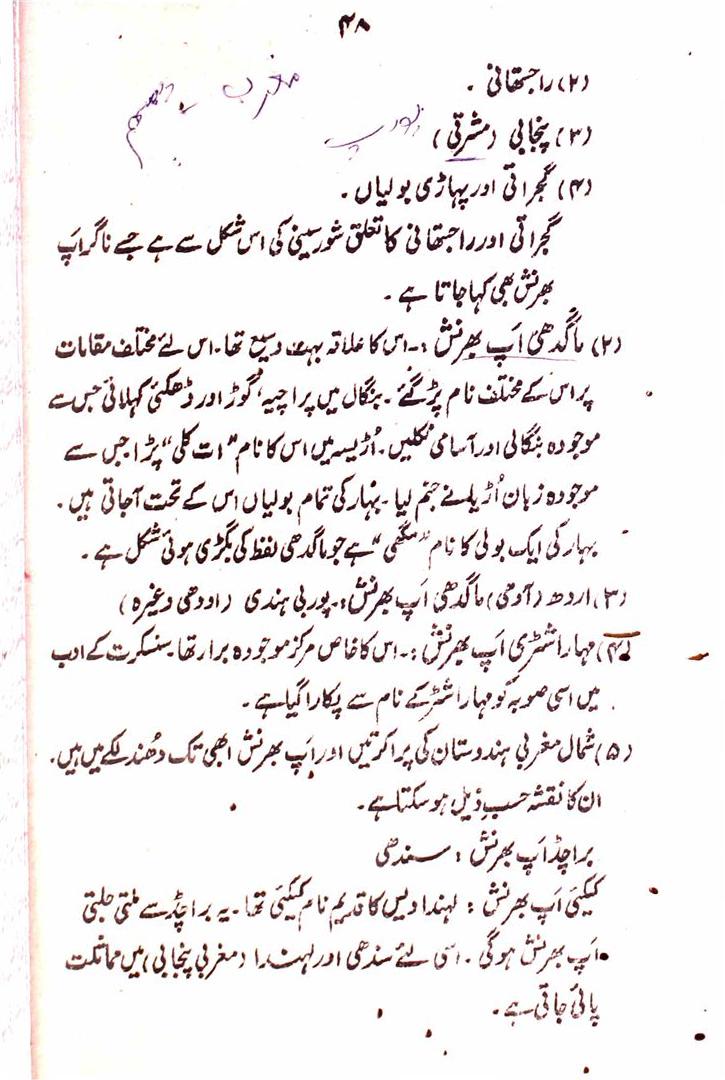 ۴۸
(۲) راجستھانی ۔
مغرب پچھم
(۳) پنجابی (مشرقی)
پورب
(۴) گجراتی اور پہاڑی بولیاں ۔
گجراتی اور راجتھانی کا تعلق شورسینی کی اس شکل سے ہے جسے ناگر اَپ
بھرنش بھی کہا جاتا ہے ۔
(۲) ماگدھی اَپ بھرنش :۔ اس کا علاقہ بہت وسیع تھا۔ اس لئے مختلف مقامات
پر اس کے مختلف نام پڑ گئے ۔ بنگال میں پراچیہ، گوڑ اور ڈھکئی کہلائی جس سے
موجودہ بنگالی اور آسامی نکلیں۔ اُڑیسہ میں اس کا نام "ات کلی" پڑا جس سے
موجودہ زبان اُڑیا نے جنم لیا۔ بہار کی تمام بولیاں اس کے تحت آجاتی ہیں ۔
بہار کی ایک بولی کا نام "مگہی" ہے جو ماگدھی لفظ کی بگڑی ہوئی شکل ہے ۔
(۳) اردھ (آدھی) ماگدھی اَپ بھرنش :۔ پوربی ہندی (اودھی وغیرہ)
(۴) مہاراشٹری اَپ بھرنش :۔ اس کا خاص مرکز موجودہ برار تھا۔ سنسکرت کے ادب
میں اسی صوبہ کو مہاراشٹر کے نام سے پکارا گیا ہے ۔
(۵) شمال مغربی ہندوستان کی پراکرتیں اور اَپ بھرنش ابھی تک دُھندلکے میں ہیں۔
ان کا نقشہ حسبِ ذیل ہو سکتا ہے۔
براچڈ اَپ بھرنش : سندھی
کیکئی اَپ بھرنش : لہندا دیس کا قدیم نام کیکئی تھا۔ یہ براچڈ سے ملتی جلتی
اَپ بھرنش ہوگی ۔ اسی لئے سندھی اور لہندا (مغربی پنجابی) میں مماثلت
پائی جاتی ہے ۔